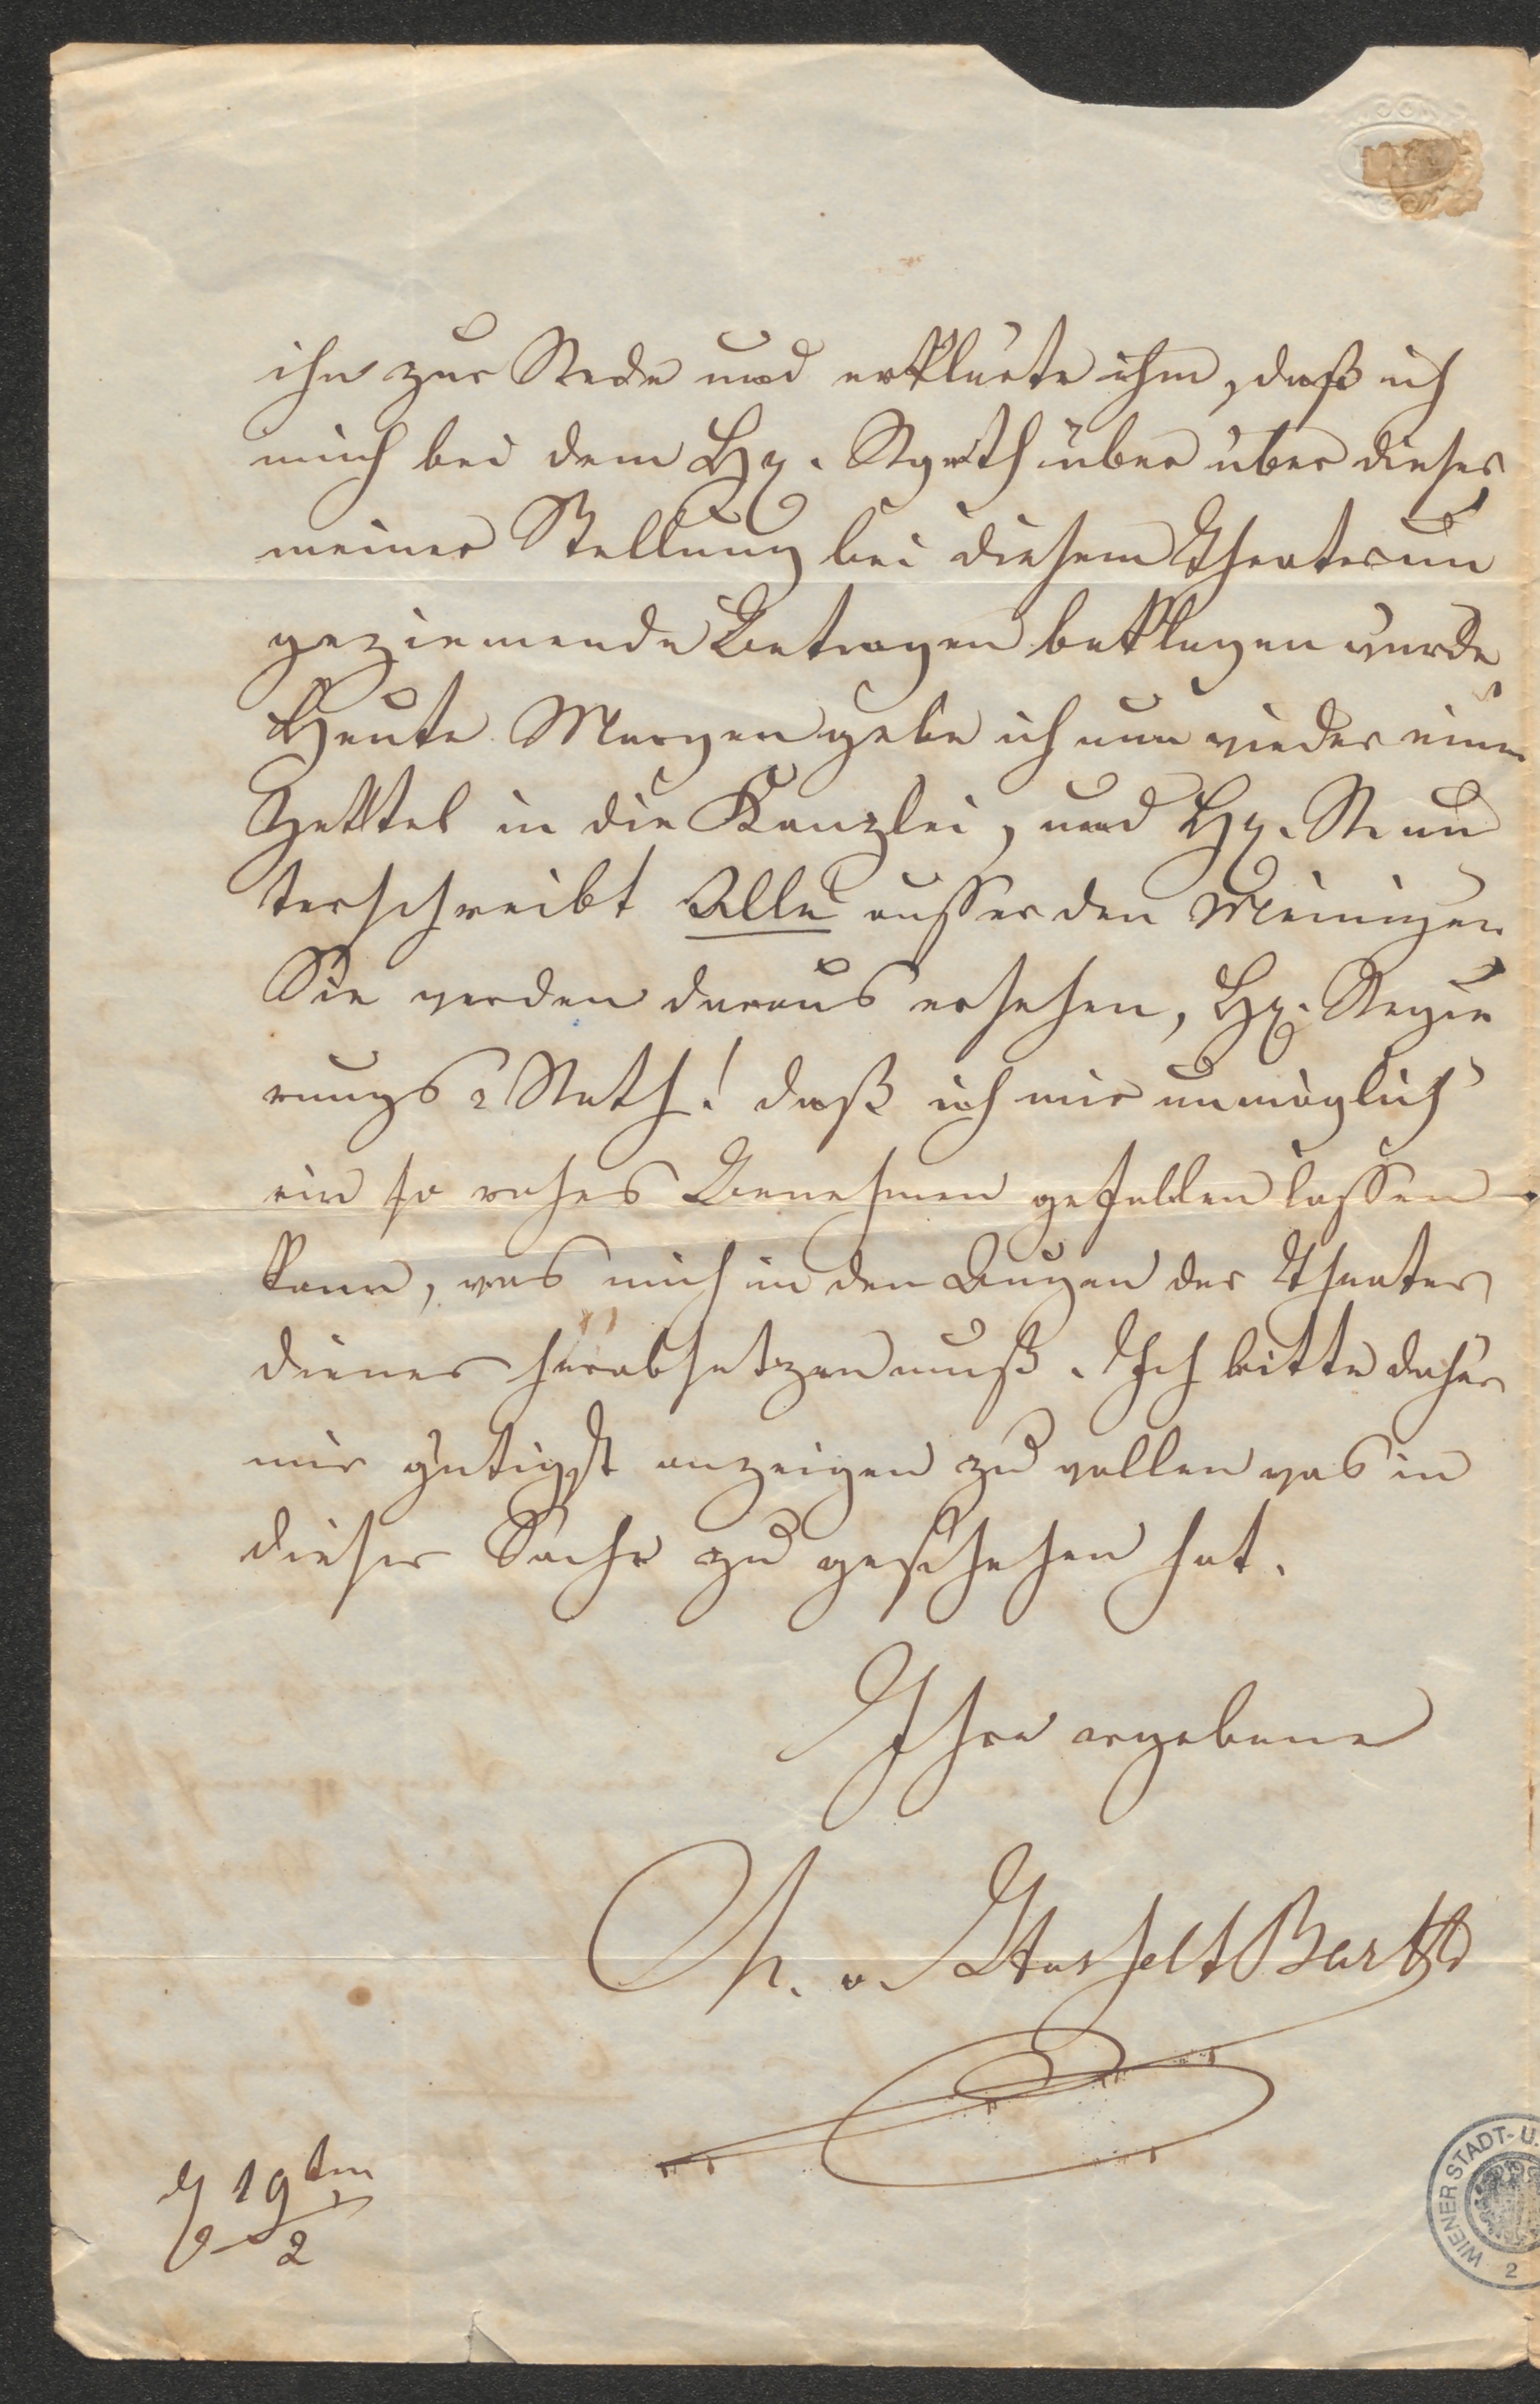 ihn zur Rede und erklärte ihm, daß ich
mich bei dem H. Rgrth über über dieses
meiner Stellung bei diesem Theater un
geziemende Betragen beklagen werde
Heute Morgen gebe ich nun wieder einen
Zettel in die Kanzlei, und H. St. un
terschreibt Alle ausser den Meinigen
Sie werden daraus ersehen, H. Regie
rungs Rath! daß ich mir unmöglich
ein so rohes Benehmen gefallen lassen
kann, was mich in den Augen der Theater
diener herabsetzen muß. Ich bitte daher
mir gütigst anzeigen zu wollen was in
dieser Sache zu geschehen hat.
Ihre ergebene
v. Hasselt Barth
19ten
2
WIENER STADT- U.
2